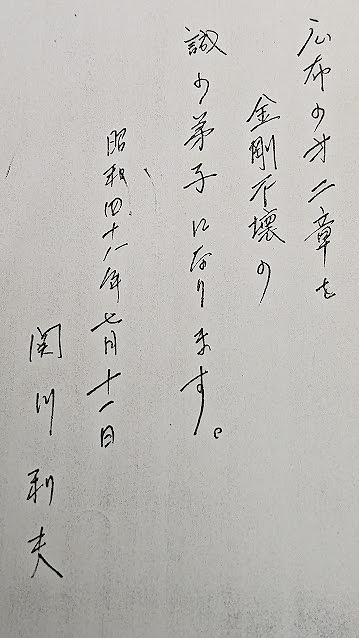 広布の才二章を
金剛不壊の
誠の弟子になります。
昭和四十八年七月十一日
関川利夫